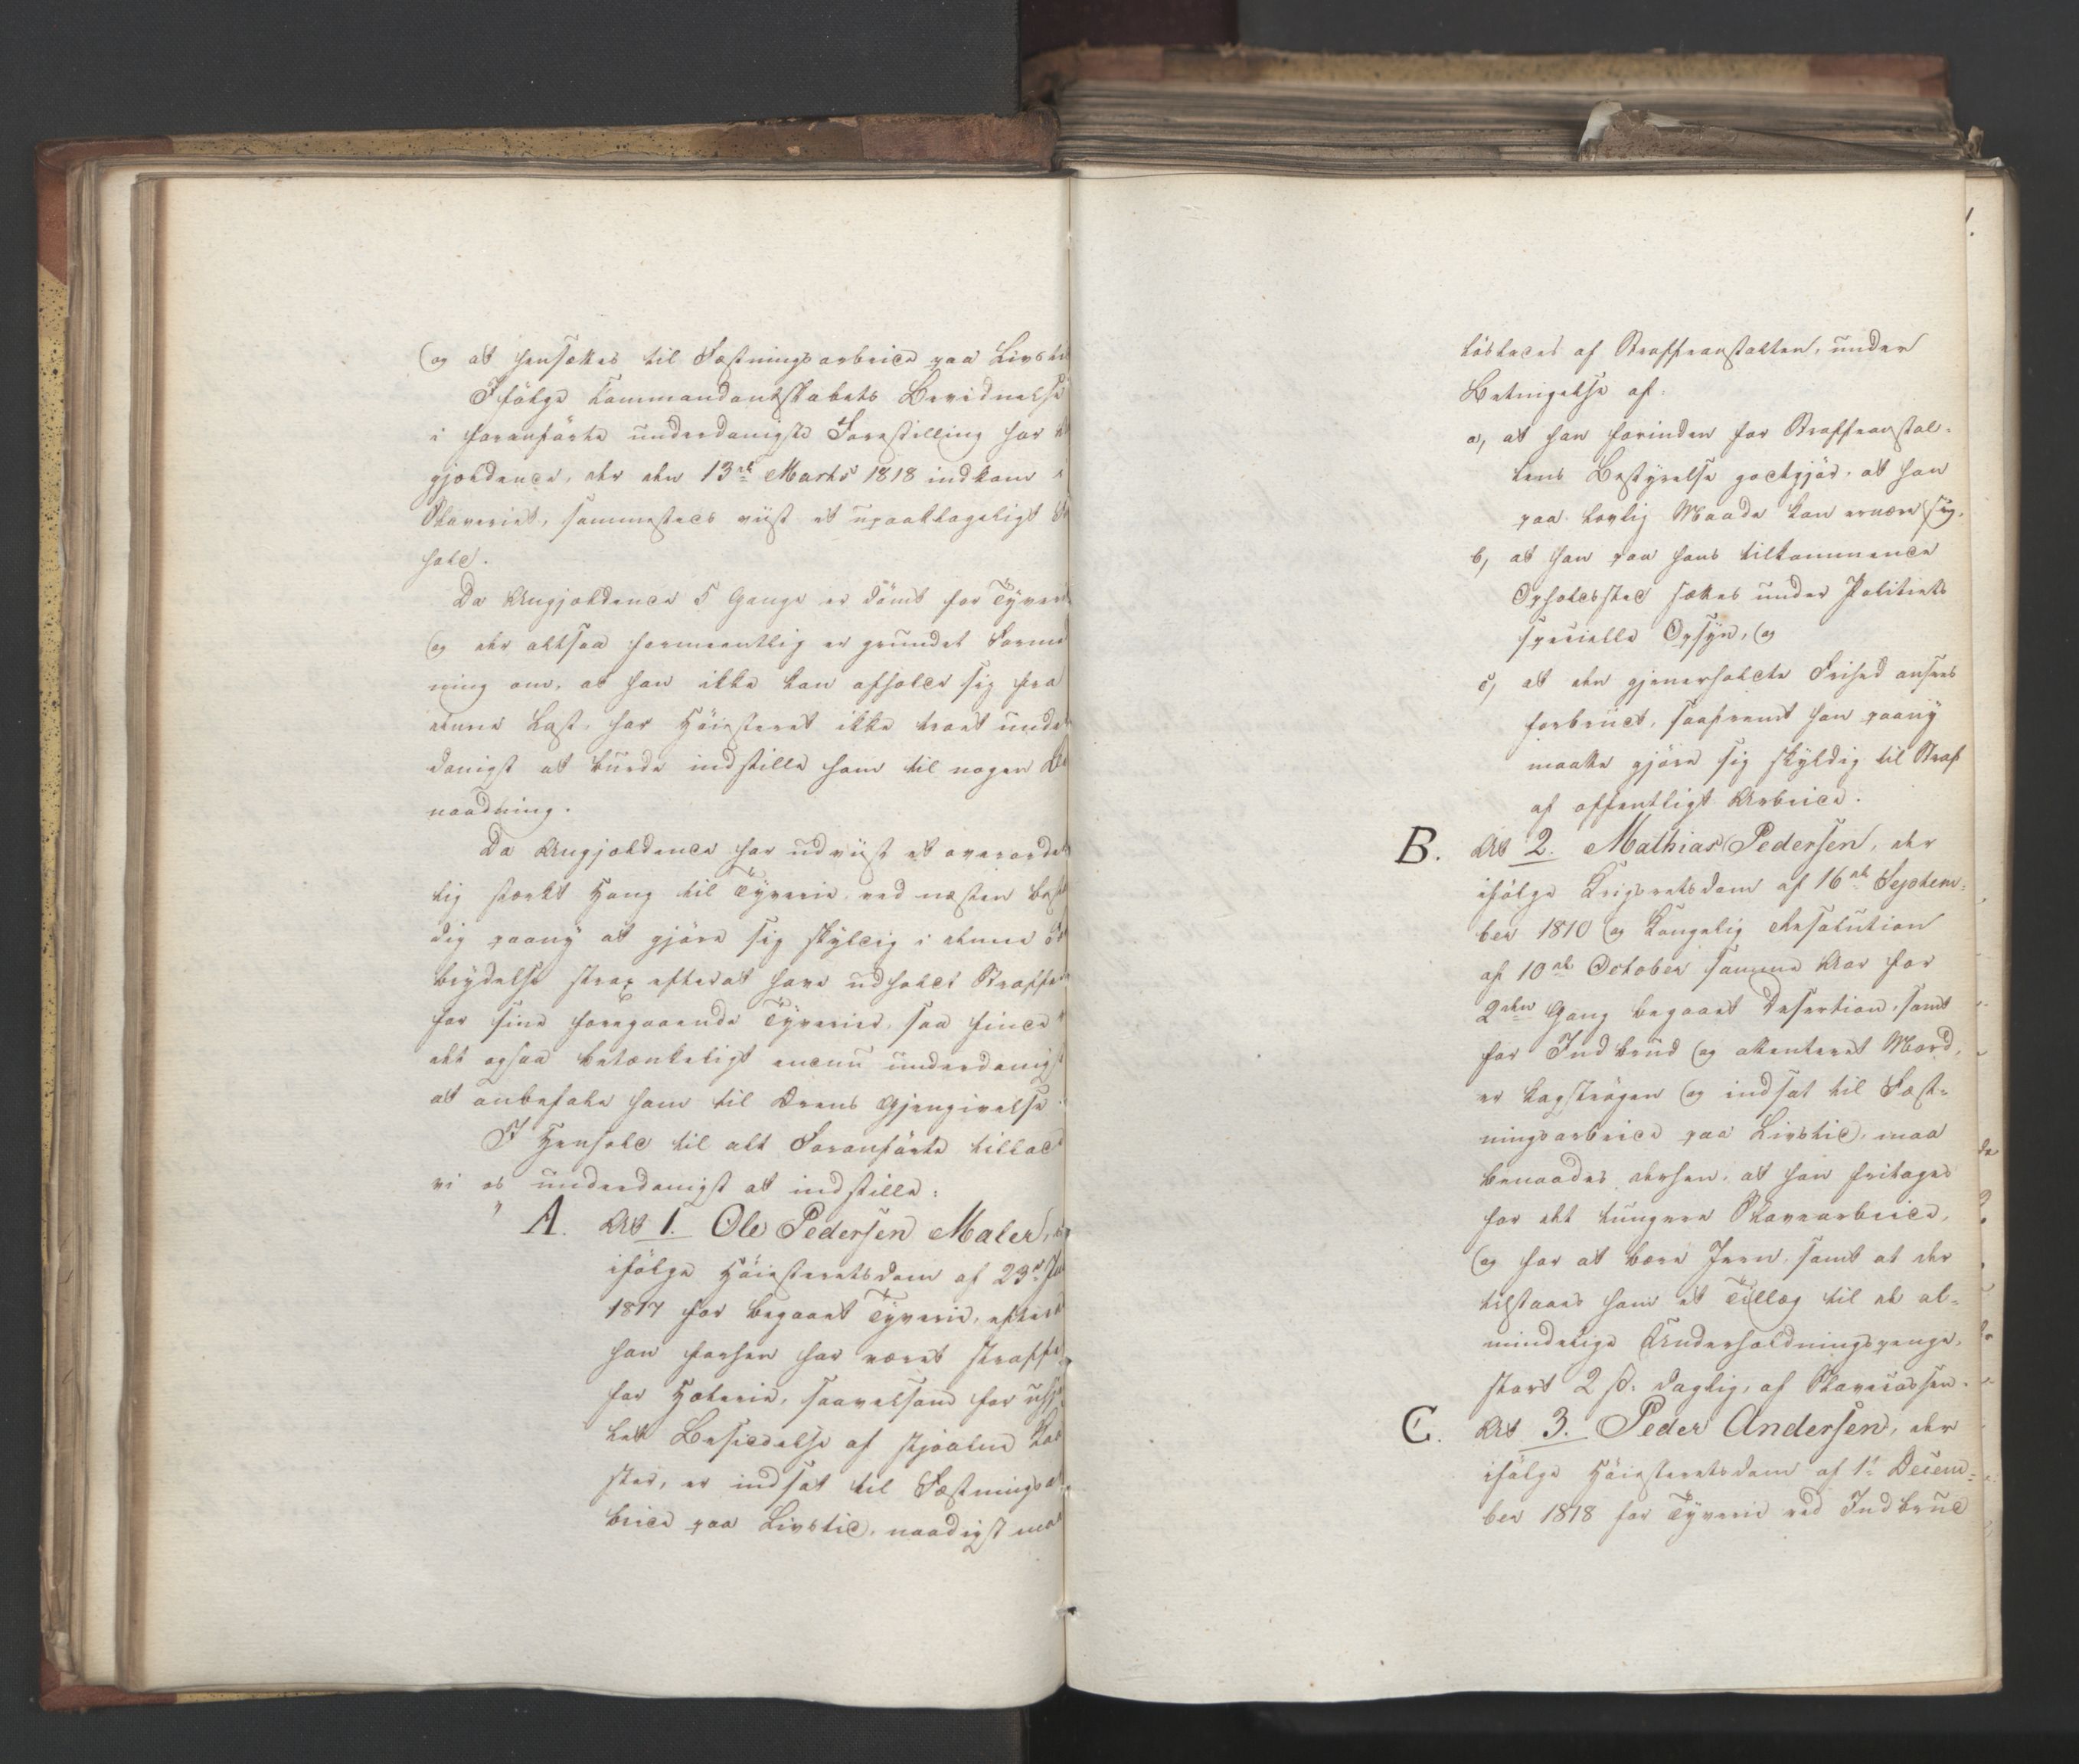 og at hensættes til Fæstningsarbeide paa Livstid
Ifölge Kommandantskabets Bevidnelse
i foranförte underdanigste Forestilling har
gjeldende, der den 13de Marts 1818 indkom i
Slaveriet, sammesteds viist et upaaklageligt
hold.
Da Angjeldende 5 Gange er dömt for Tyverie
og der altsaa formeentlig er grundet Forme
ning om, at han ikke kan afholde sig fra
denne Last, har Höiesteret ikke troet under
danigst at burde indstille ham til nogen Be
naadning.
Da Angjeldende har udviist et overordent
lig stærkt Hang til Tyverie, ved næsten bestan
dig paany at gjöre sig skyldig i denne
brydelse strax efterat have udholdt Straffen
for sine foregaaende Tyverier, saa finde
det ogsaa betænkeligt endnu underdanigst
at anbefale ham til Deres Gjengivelse.
I Henhold til alt Foranförte tillade
vi os underdanigst at indstille:
" A. At 1. Ole Pedersen Maler, der
ifölge Höiesteretsdom af 23de
1817 for begaaet Tyverie, efterat
han forhen har været straffet
for Hæleri, saavelsom for
let Besiddelse af stjaalne Ko
ster, er indsat til Fæstningsar
beide paa Livstid, naadigst maa
löslades af Straffeanstalten, under
Betingelse af:
a, at han forinden for Straffeanstal-
tens Bestyrelse godtgjör, at han
paa lovlig Maade kan ernære sig.
b, at han paa hans tilkommende
Opholdssted sættes under Politiets
specielle Opsyn, og
c, at den gjenerholdte Frihed ansees
forbrudt, saafremt han paany
maatte gjöre sig skyldig til Straf
af offentligt Arbeide.
B. At 2. Mathias Pedersen, der
ifölge Krigsretsdom af 16de Septem-
ber 1810 og Kongelig Resolution
af 10de October samme Aar for
2den Gang begaaet Desertion, samt
for Indbrud og attenteret Mord,
er kagströgen og indsat til Fæst-
ningsarbeide paa Livstid, maa
benaades derhen, at han fritages
for det tungere Slavearbeide,
og for at bære Jern, samt at der
tilstaaes ham et Tillæg til de al-
mindelige Underholdningspenge,
stort 2 ß. daglig, af Slavecassen.
C. At 3. Peder Andersen, der
ifölge Höiesteretsdom af 1ste Decem-
ber 1818 for Tyverie ved Indbrud